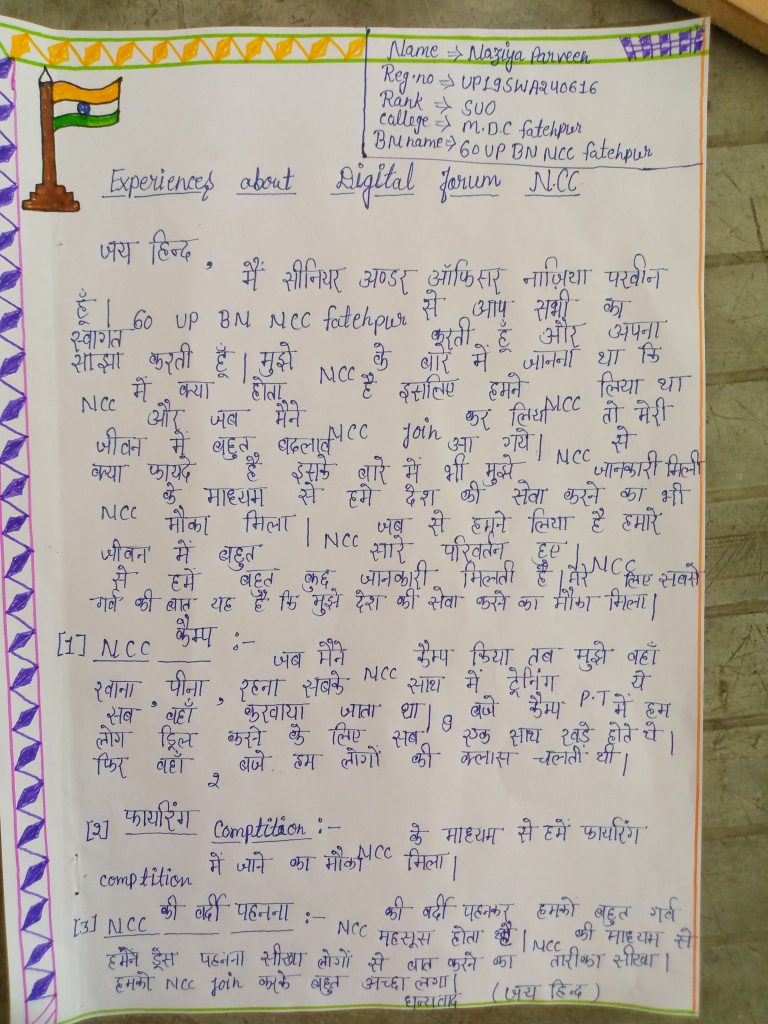 Name ⇒ Naziya Parveen
Reg.no ⇒ UP19SWA240616
Rank ⇒ SUO
college ⇒ M.D.C fatehpur
BN name ⇒ 60 UP BN NCC fatehpur
Experiences about Digital forum N.CC
जय हिन्द,
मैं सीनियर अण्डर ऑफिसर नाज़िया परवीन
हूँ | 60 UP BN NCC fatehpur से आप सभी का
स्वागत करती हूँ और अपना
साझा करती हूँ | मुझे NCC के बारे में जानना था कि
NCC में क्या होता है इसलिए हमने NCC लिया था
और जब मैने NCC join कर लिया तो मेरी
जीवन में बहुत बदलाव आ गये | NCC से
क्या फायदे है इसके बारे में भी मुझे जानकारी मिली
NCC के माध्यम से हमे देश की सेवा करने का भी
मौका मिला | NCC जब से हमने लिया है हमारे
जीवन में बहुत सारे परिवर्तन हुए | NCC
से हमें बहुत कुछ जानकारी मिलती है | मेरे लिए सबसे
गर्व की बात यह है कि मुझे देश की सेवा करने का मौका मिला |
[1] NCC कैम्प :- जब मैने NCC कैम्प किया तब मुझे वहाँ
खाना, पीना, रहना सबके साथ में ट्रेनिंग ये
सब वहाँ करवाया जाता था | 8 बजे कैम्प P.T में हम
लोग ड्रिल करने के लिए सब एक साथ खड़े होते थे |
फिर वहाँ 2 बजे हम लोगों की क्लास चलती थी |
[2] फायरिंग Comptition :- NCC के माध्यम से हमें फायरिंग
comptition में जाने का मौका मिला |
[3] NCC की वर्दी पहनना :- NCC की वर्दी पहनकर हमको बहुत गर्व
महसूस होता है | NCC की माध्यम से
हमने ड्रेस पहनना सीखा लोगों से बात करने का तारीका सीखा |
हमको NCC join करके बहुत अच्छा लगा |
धन्यवाद (जय हिन्द)